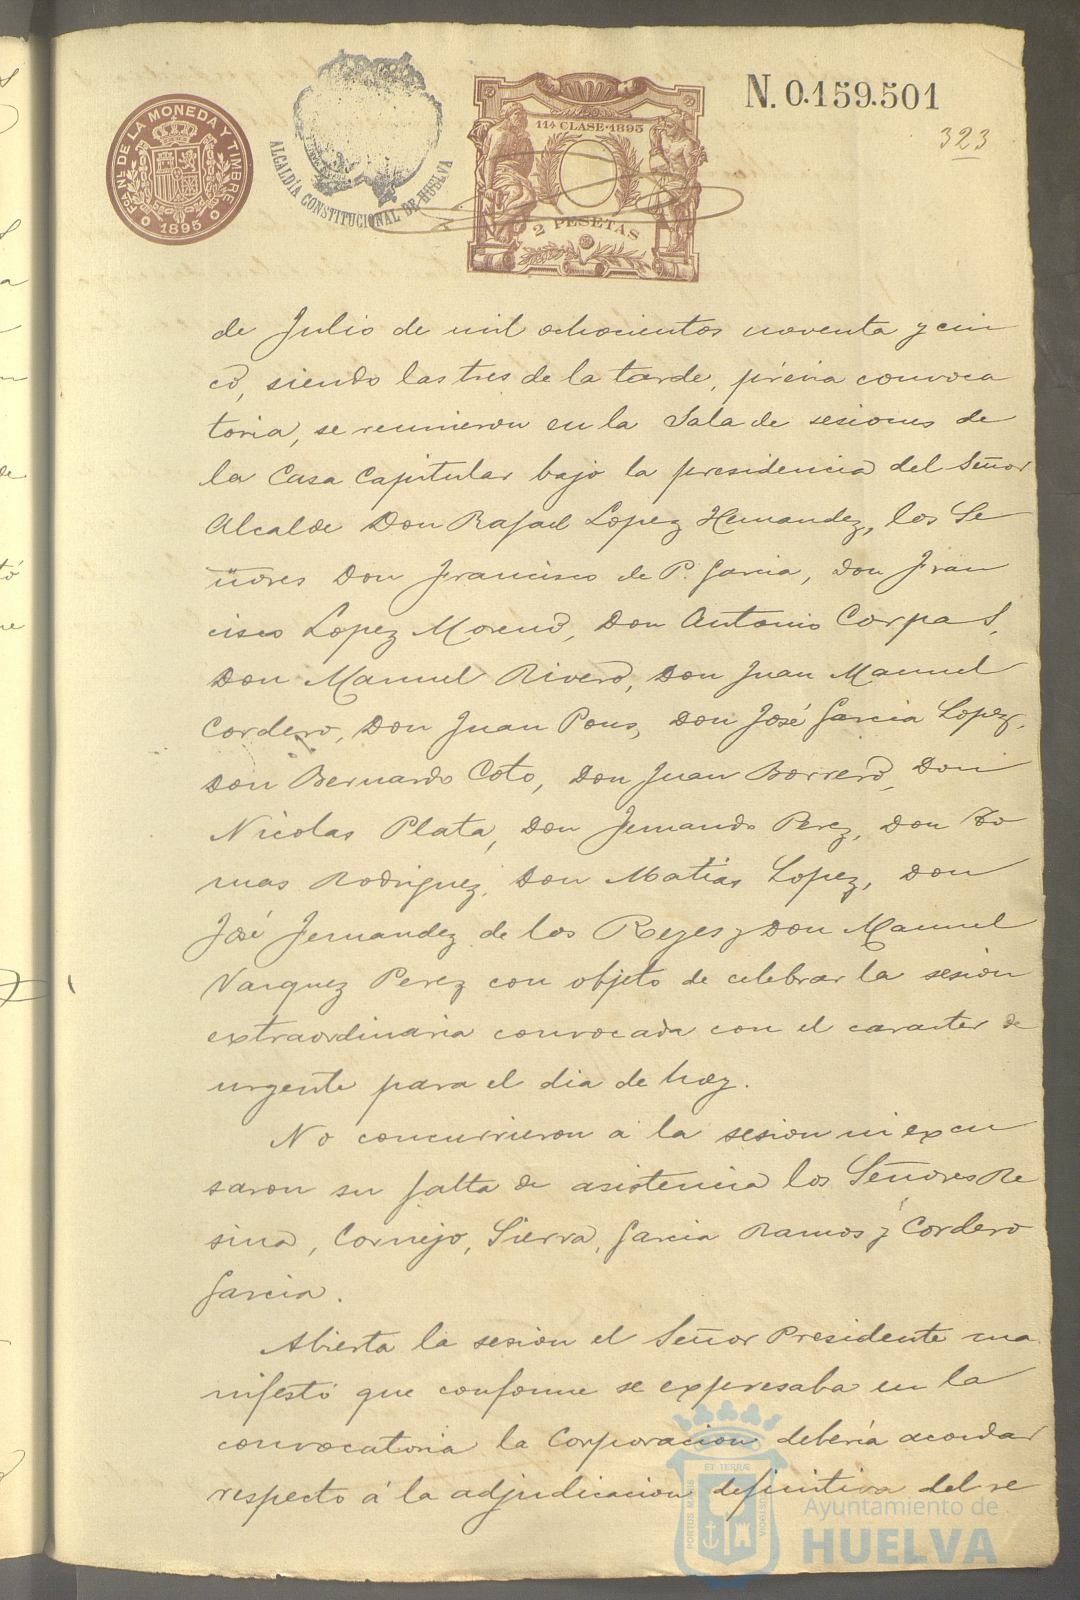 FCA. NL. DE LA MONEDA Y TIMBRE
1895
ALCALDÍA CONSTITUCIONAL DE HUELVA
11ª CLASE·1895
2 PESETAS
N. 0.159.501
323
de Julio de mil ochocientos noventa y cin
co, siendo las tres de la tarde, prévia convoca
toria, se reunieron en la Sala de sesiones de
la Casa Capitular bajo la presidencia del Señor
Alcalde Don Rafael Lopez Hernandez, los Se
ñores Don Francisco de P. Garcia, Don Fran
cisco Lopez Moreno, Don Antonio Corpa S,
Don Manuel Rivero, Don Juan Manuel
Cordero, Don Juan Pons, Don José Garcia Lopez,
Don Bernardo Coto, Don Juan Borrero, Don
Nicolas Plata, Don Fernando Perez, Don To
mas Rodriguez, Don Matias Lopez, Don
José Fernandez de los Reyes y Don Manuel
Vazquez Perez con objeto de celebrar la sesion
extraordinaria convocada con el caracter de
urgente para el dia de hoy.
No concurrieron á la sesion ni excu
saron su falta de asistencia los Señores Re
sina, Cornejo, Sierra, Garcia Ramos y Cordero
Garcia.
Abierta la sesion el Señor Presidente ma
nifestó que conforme se expresaba en la
convocatoria la Corporacion debería acordar
respecto á la adjudicacion definitiva del re
PORTUS MARIS ET TERRÆ CUSTODIA
Ayuntamiento de
HUELVA